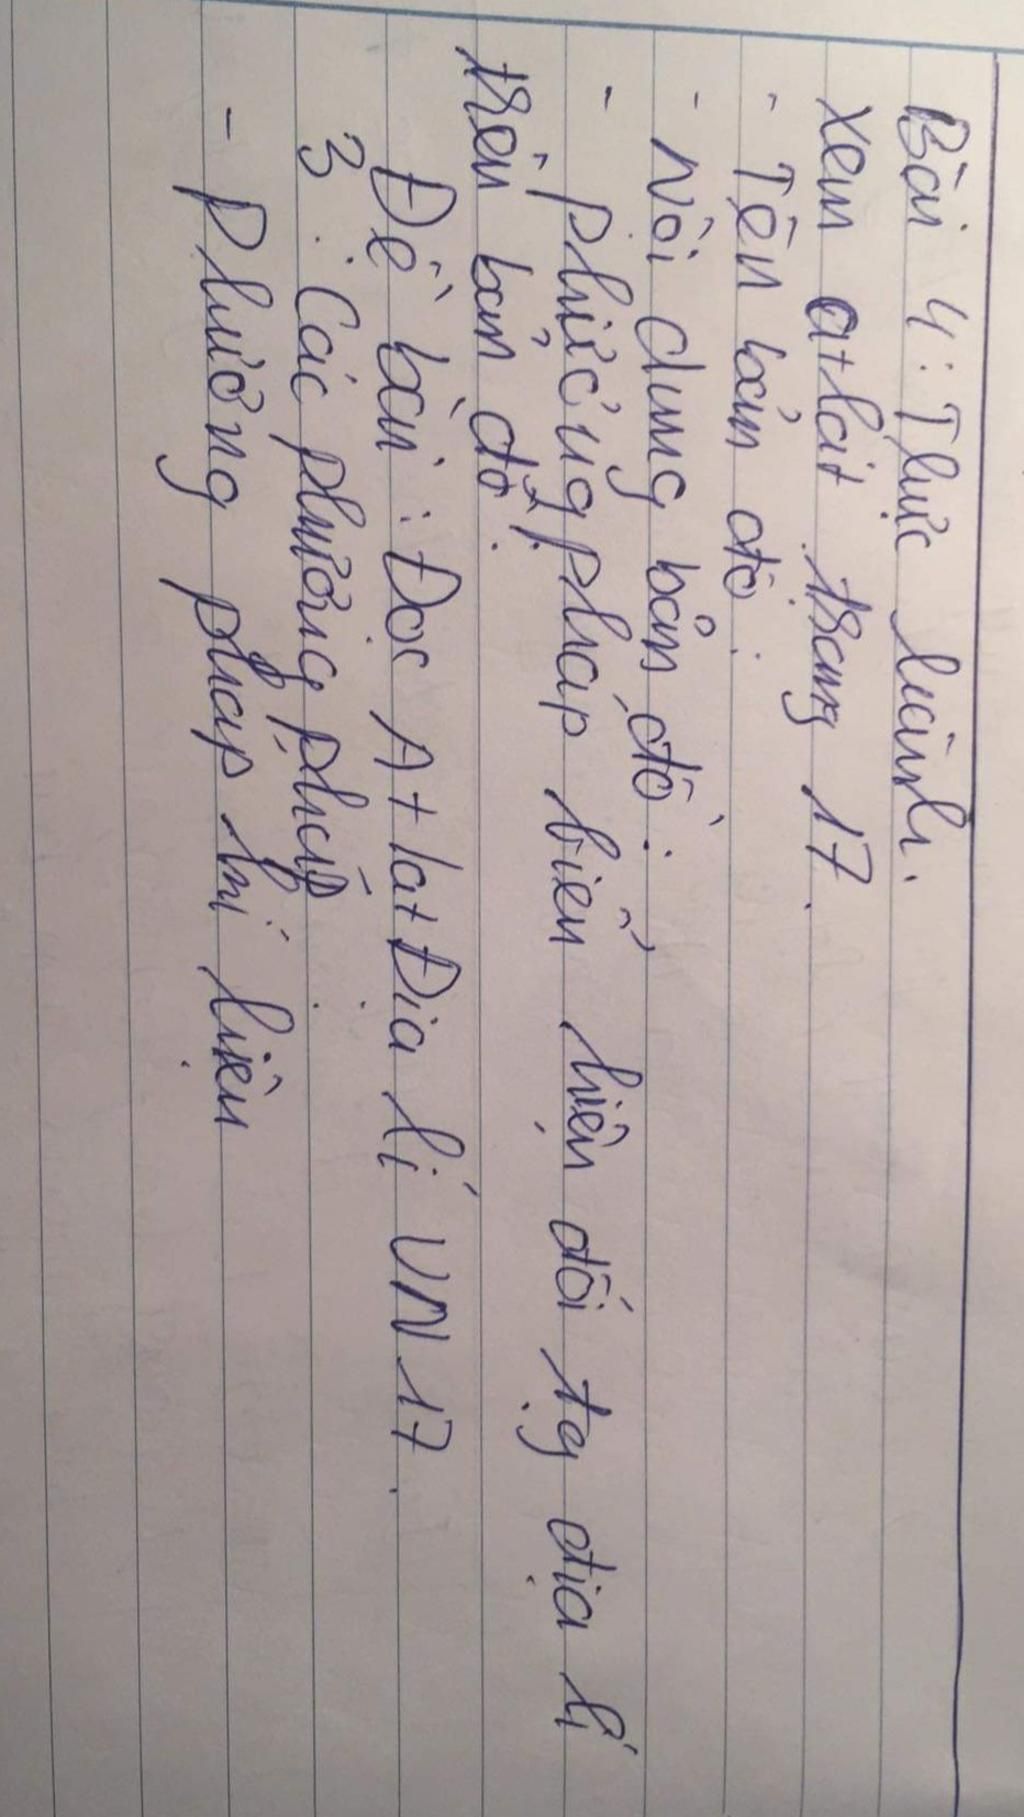 Bài 4: Thực hành.
Xem atlat trang 17.
- Tên bản đồ:
- Nội dung bản đồ:
- phương pháp biểu hiện đối tg địa lí
trên bản đồ.
Đề bài: Đọc Atlat Địa lí VN 17.
3. Các phương pháp
- Phương pháp kí hiệu